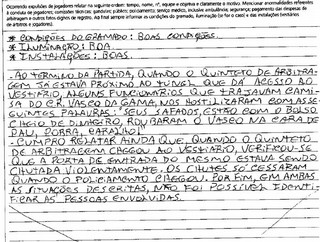 Ocorrendo expulsões de jogadores relatar no seguinte ordem: tempo, nome, nº, equipe e explicar claramente o motivo. Mencionar anormalidades referentes
à conduta de jogadores, comissões técnicas, assistentes,
arbitragem e outros fatos dignos de registro. Ao final sempre informar as condições do gramado, iluminação (se for o caso) e das instalações (vestiários
de árbitros e jogadores).
* CONDIÇÕES DO GRAMADO: BOAS CONDIÇÕES.
* ILUMINAÇÃO: BOA.
* INSTALAÇÕES: BOAS.
- AO TERMINO DA PARTIDA, QUANDO O QUINTETO DE ARBITRA-
GEM JÁ ESTAVA PRÓXIMO AO TUNEL QUE DÁ ACESSO AO
VESTIÁRIO, ALGUNS FUNCIONÁRIOS QUE TRAJAVAM CAMI-
SA DO C.R. VASCO DA GAMA, NOS HOSTILIZARAM COM AS SE-
GUINTES PALAVRAS: "SEUS SAFADOS, ESTÃO COM O BOLSO
CHEIO DE DINHEIRO, ROUBARAM O VASCO NA CARA DE
PAU, PORRA, CARALHO!"
- CUMPRO RELATAR AINDA QUE, QUANDO O QUINTETO
DE ARBITRAGEM CHEGOU AO VESTIÁRIO, VERIFICOU-SE
QUE A PORTA DE ENTRADA DO MESMO ESTAVA SENDO
CHUTADA VIOLENTAMENTE. OS CHUTES SÓ CESSARAM
QUANDO O POLICIAMENTO CHEGOU. POR FIM, EM AMBAS
AS SITUAÇÕES DESCRITAS, NÃO FOI POSSÍVEL IDENTI-
FICAR AS PESSOAS ENVOLVIDAS.